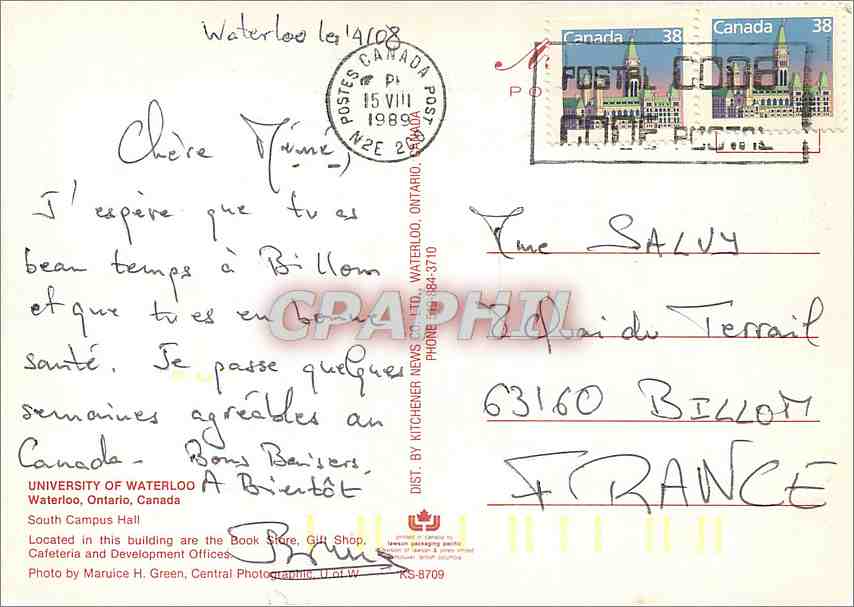 Waterloo le 14/08
Canada 38
Canada 38
POSTES CANADA POST
PI
15 VIII
1989
N2E 2S0
POSTAL CODE
CODE POSTAL
PO
Chère Mémé,
J'espère que tu as
beau temps à Billom
et que tu es en bonne
santé. Je passe quelques
semaines agréables au
Canada - Bons Baisers.
A Bientôt
Bruno
Mme SALVY
8 Quai du Terrail
63160 BILLOM
FRANCE
CPAPHIL
DIST. BY KITCHENER NEWS CO. LTD., WATERLOO, ONTARIO, CANADA
PHONE 884-3710
UNIVERSITY OF WATERLOO
Waterloo, Ontario, Canada
South Campus Hall
Located in this building are the Book Store, Gift Shop,
Cafeteria and Development Offices.
Photo by Maruice H. Green, Central Photographic, U of W
printed in canada by
lawson packaging pacific
a division of lawson & jones limited
vancouver, british columbia
KS-8709